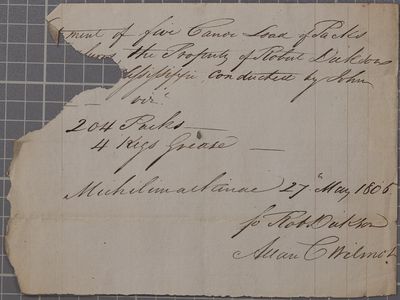 ment of five Canoe Load of Packs
the Property of Robert Dickson
conducted by John
viz.
204 Packs —
4 Kegs Grease —
Michilimackinac 27" May 1806
Robt Dickson
Allan C Wilmot